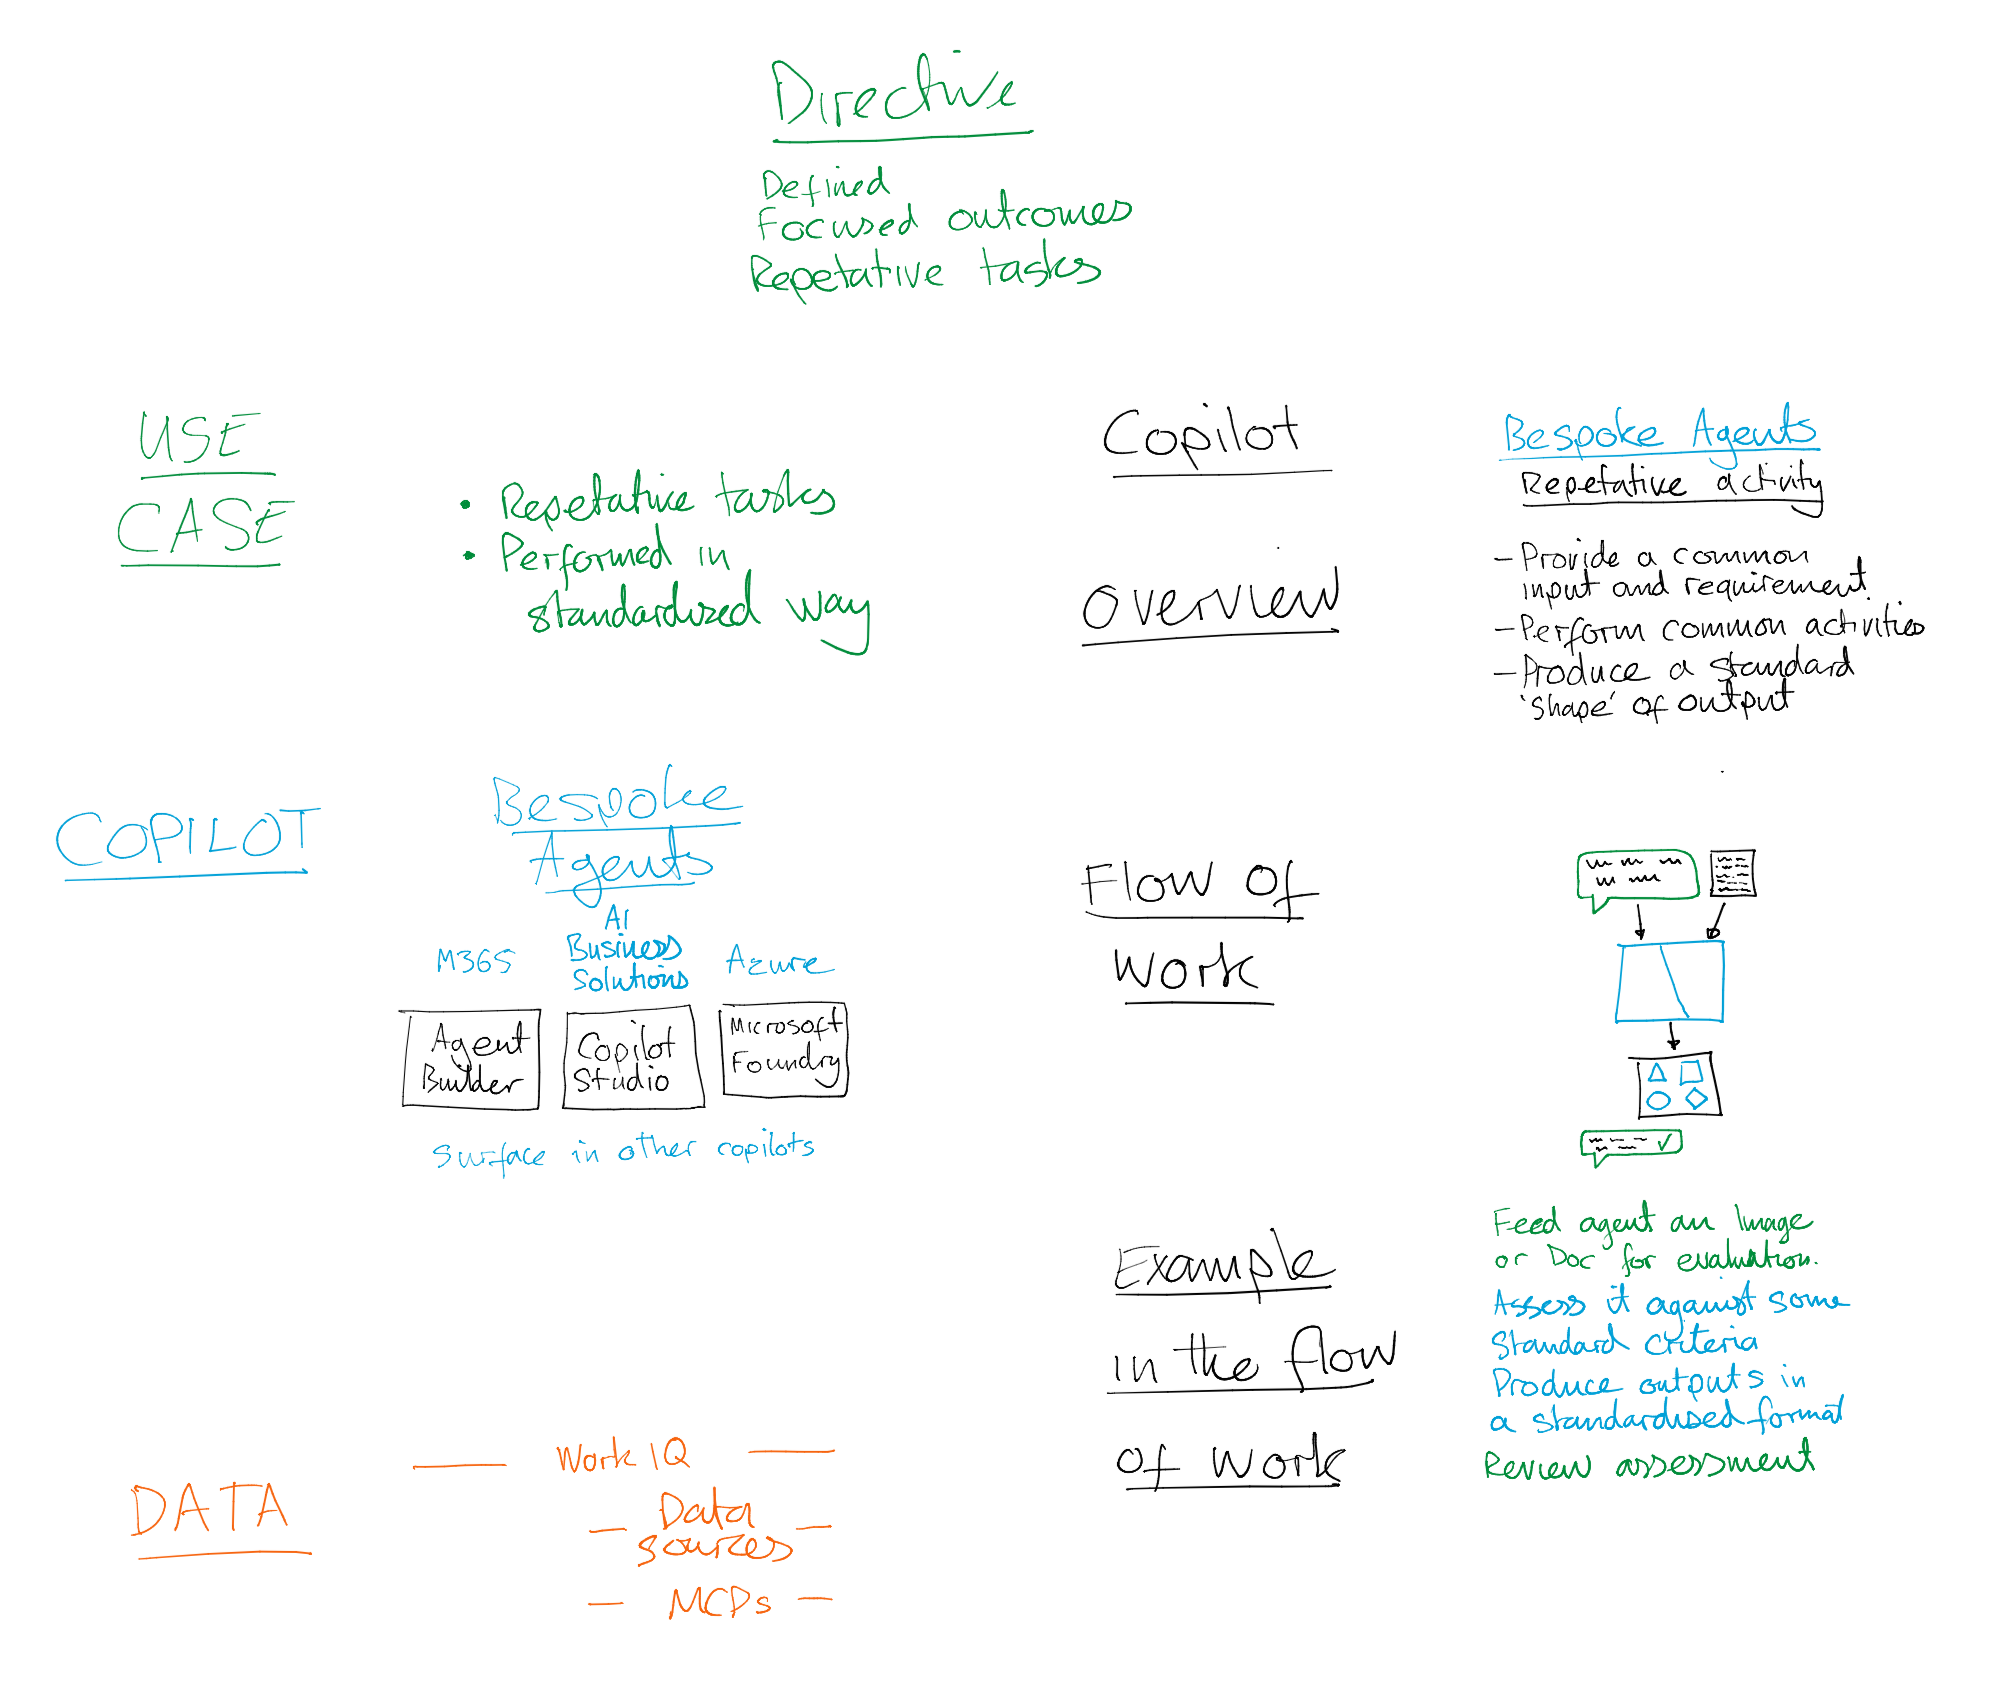 Directive
Defined
Focused outcomes
Repetative tasks
USE
CASE
• Repetative tasks
• Performed in
standardized way
COPILOT
Bespoke
Agents
M365
AI
Business
Solutions
Azure
Agent
Builder
Copilot
Studio
Microsoft
Foundry
Surface in other copilots
DATA
Work IQ
Data
sources
MCPs
Copilot
Overview
Bespoke Agents
Repetative activity
- Provide a common
input and requirement.
- Perform common activities
- Produce a standard
'shape' of output
Flow of
Work
Example
in the flow
of work
Feed agent an Image
or Doc for evaluation.
Assess it against some
Standard Criteria
Produce outputs in
a standardised format
Review assessment